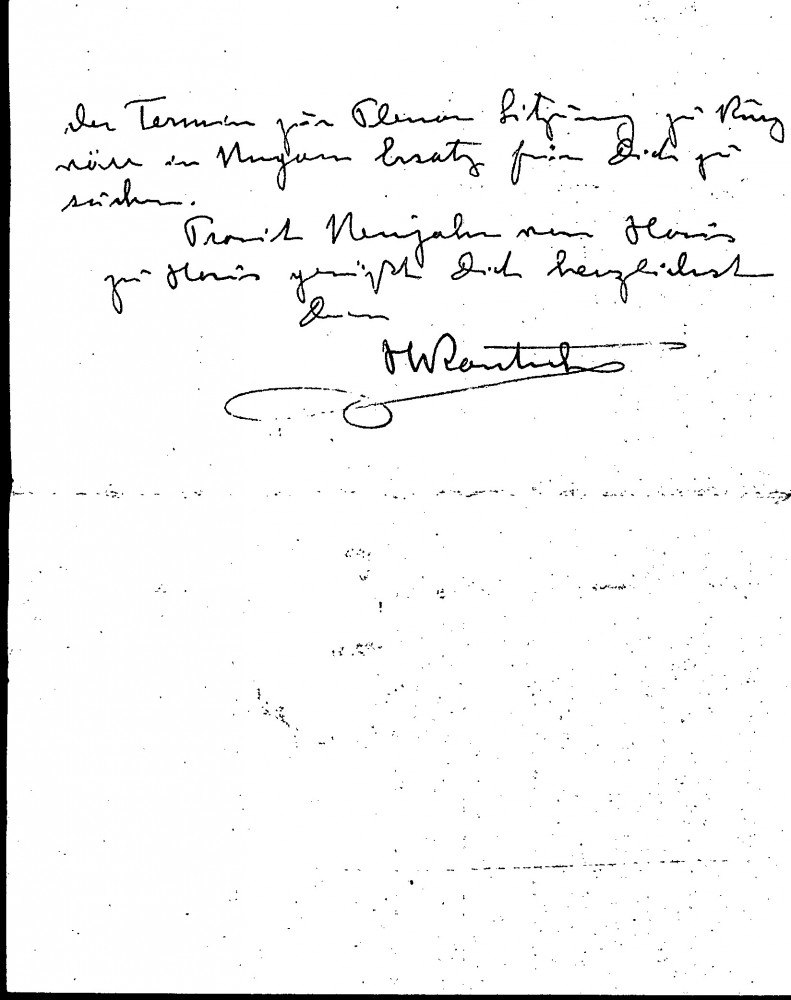 der Termin zur Plenar Sitzung zu kurz
wäre in Ungarn Ersatz für Dich zu
suchen.
Prosit Neujahr von Haus
zu Haus grüßt Dich herzlichst
Dein